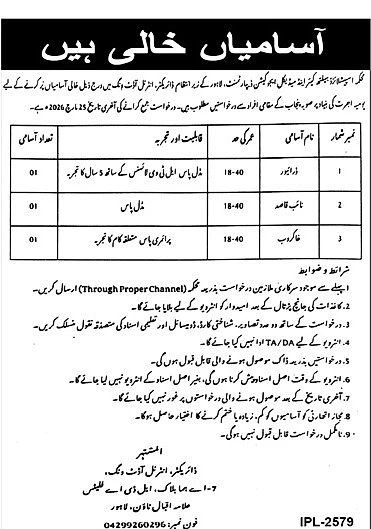 آسامیاں خالی ہیں
محکمہ اسپیشلائزڈ ہیلتھ کیئر اینڈ میڈیکل ایجوکیشن ڈیپارٹمنٹ، لاہور کے زیر انتظام ڈائریکٹر، انٹرنل آڈٹ ونگ میں درج ذیل خالی آسامیاں پُر کرنے کے لیے
یومیہ اجرت کی بنیاد پر صوبہ پنجاب کے مقامی افراد سے درخواستیں مطلوب ہیں۔ درخواست جمع کرانے کی آخری تاریخ 25 مارچ 2026ء ہے۔
نمبر شمار نام آسامی عمر کی حد قابلیت اور تجربہ تعداد آسامی
1 ڈرائیور 18-40 مڈل پاس ایل ٹی وی لائسنس کے ساتھ 5 سال کا تجربہ 01
2 نائب قاصد 18-40 مڈل پاس 01
3 خاکروب 18-40 پرائمری پاس متعلقہ کام کا تجربہ 01
شرائط و ضوابط
1۔ پہلے سے موجود سرکاری ملازمین درخواست بذریعہ محکمہ (Through Proper Channel) ارسال کریں۔
2۔ کاغذات کی جانچ پڑتال کے بعد امیدوار کو انٹرویو کے لیے بلایا جائے گا۔
3۔ درخواست کے ساتھ دو عدد تصاویر، شناختی کارڈ، ڈومیسائل اور تعلیمی اسناد کی متصدقہ نقول منسلک کریں۔
4۔ انٹرویو کے لیے TA/DA ادا نہیں کیا جائے گا۔
5۔ درخواستیں بذریعہ ڈاک موصول ہونے والی قابل قبول ہوں گی۔
6۔ انٹرویو کے وقت اصل اسناد پیش کرنا ہوں گی، بغیر اصل اسناد کے انٹرویو نہیں لیا جائے گا۔
7۔ آخری تاریخ کے بعد موصول ہونے والی درخواستوں پر غور نہیں کیا جائے گا۔
8۔ مجاز اتھارٹی کو آسامیوں کو کم، زیادہ یا ختم کرنے کا اختیار حاصل ہوگا۔
9۔ نامکمل درخواست قابل قبول نہیں ہوگی۔
المشتہر
ڈائریکٹر، انٹرنل آڈٹ ونگ،
7-اے ہما بلاک، ایل ڈی اے فلیٹس
علامہ اقبال ٹاؤن، لاہور
فون نمبر: 04299260296
IPL-2579